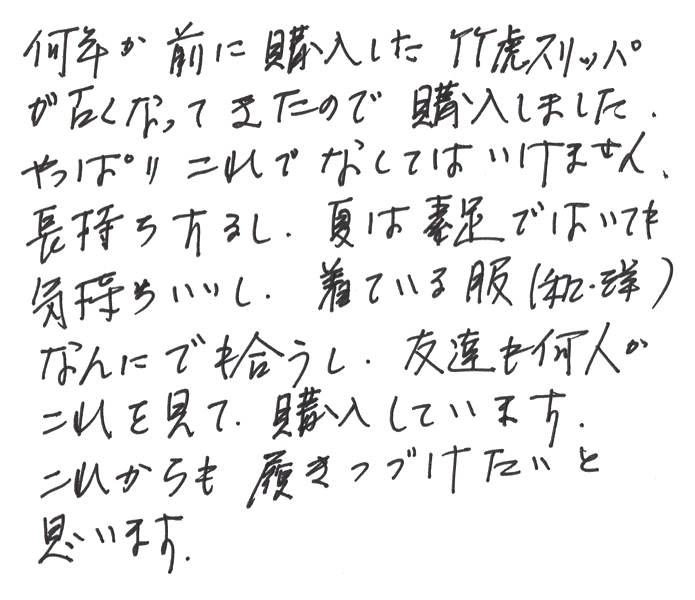 何年か前に購入した竹虎スリッパ
が古くなってきたので購入しました.
やっぱり これでなくてはいけません.
長持ちするし. 夏は素足ではいても
気持ちいいし. 着ている服(和・洋)
なんにでも合うし. 友達も何人か
これを見て. 購入しています.
これからも履きつづけたいと
思います.